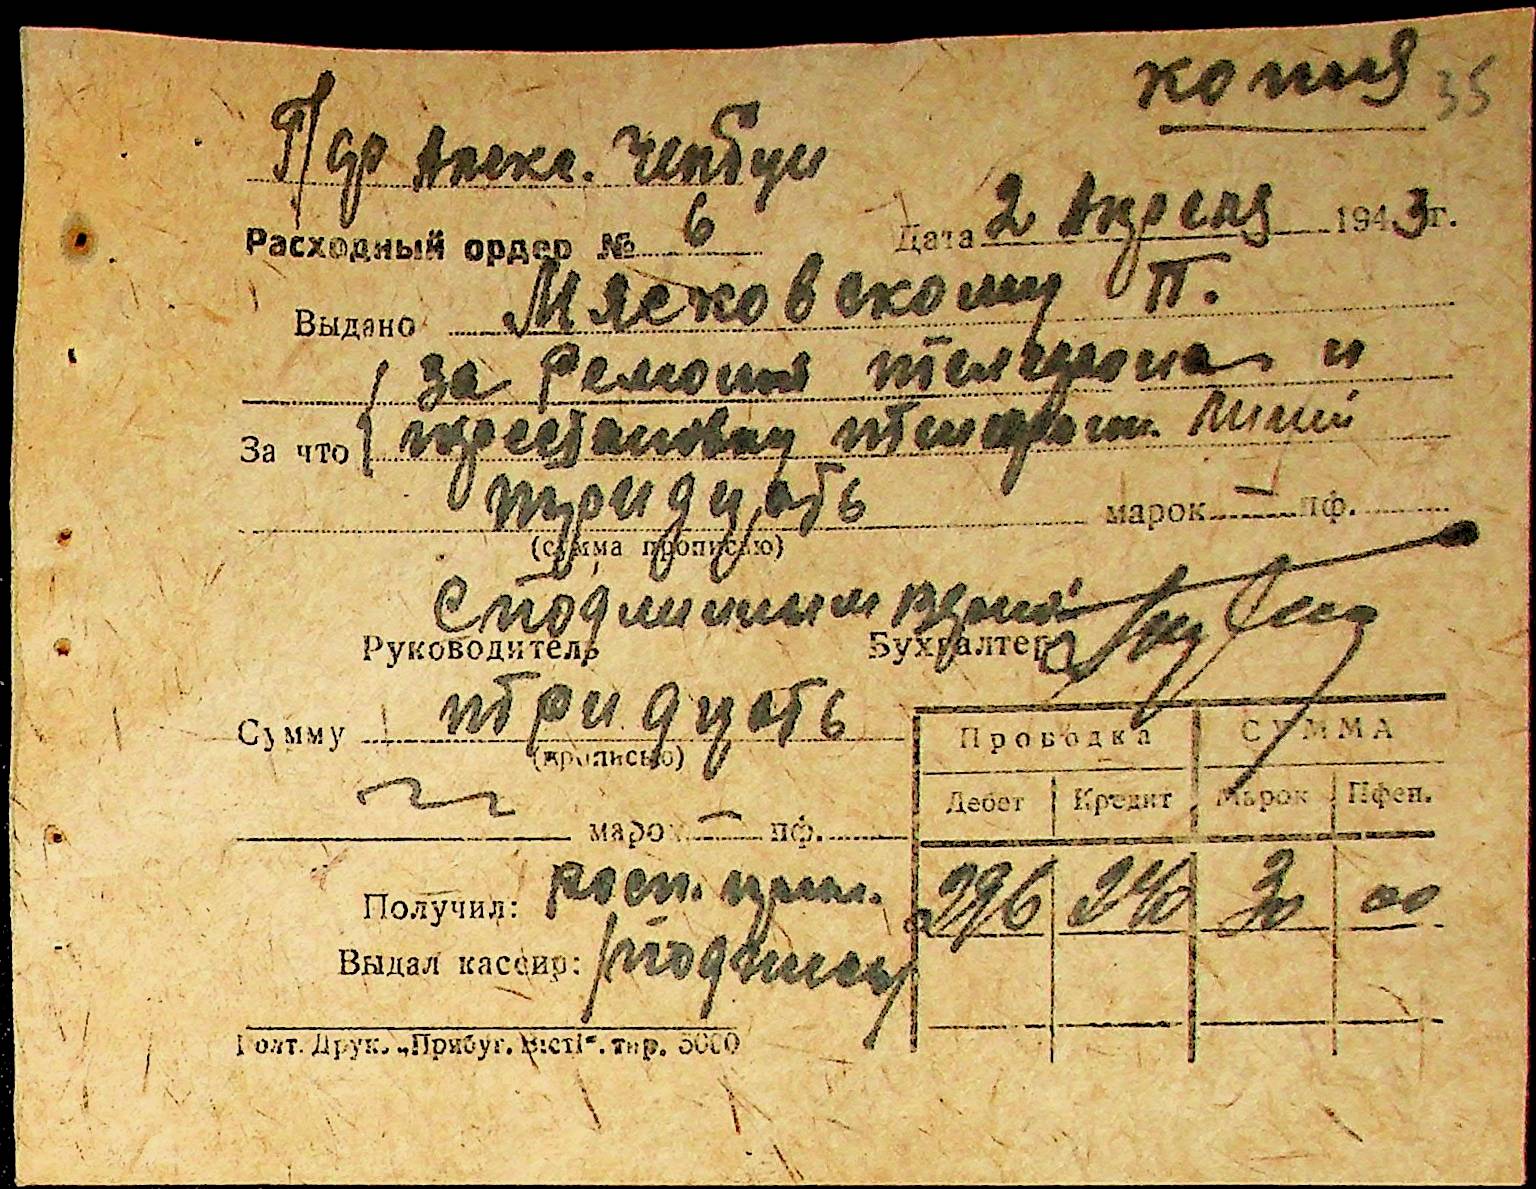 копия 35
Г/др Алекс.
Расходный ордер № 6 Дата 2 Апреля 1943 г.
Выдано Мясковскому П.
за ремонт телефона и
За что перестановку телефон. линии
тридцать марок — пф.
(сумма прописью)
С подлинным верно:
Руководитель Бухгалтер
Сумму тридцать
(прописью)
марок — пф.
Получил: расп. прил.
Выдал кассир: /подпись/
Проводка СУММА
Дебет Кредит Марок Пфен.
296 240 30 00
Голт. Друк. „Прибуг. Вісті“. тир. 5000